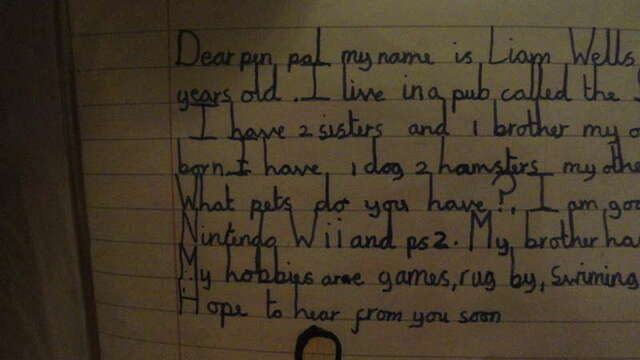 Dear pen pal my name is Liam Wells
years old. I live in a pub called the
I have 2 sisters and 1 brother my
born I have 1 dog 2 hamsters my
What pets do you have? I am
Nintendo Wii and ps2. My brother
My hobbys are games, rug by, swiming
Hope to hear from you soon